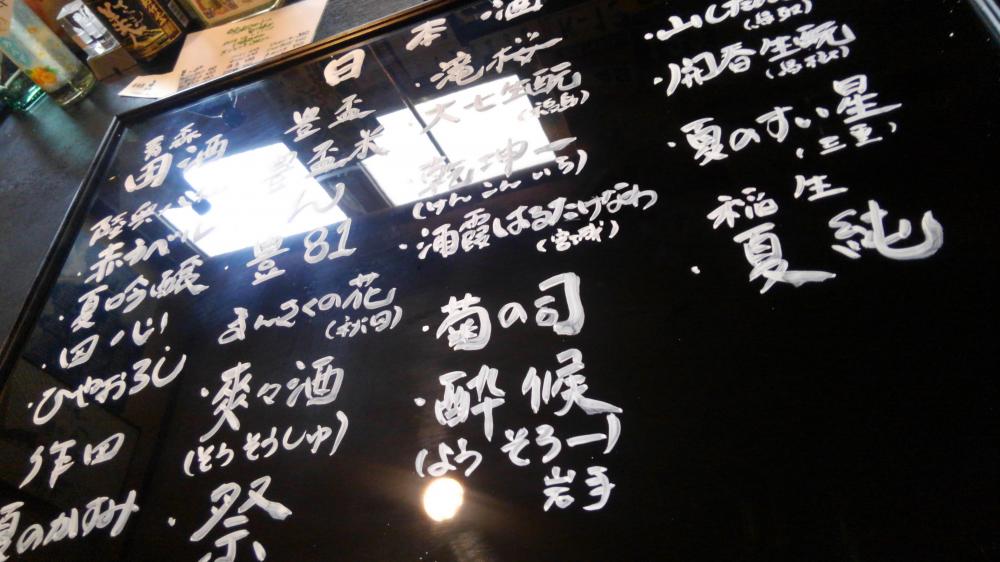 日本酒
青森
田酒
陸奥
赤ラベル
・夏吟醸
・四
・ひやおろし
作田
夏のかすみ
豊盃
豊盃米
ん
・豊81
まんさくの花
(秋田)
・爽々酒
(そうそうしゅ)
・祭
・滝桜
・大七生酛
(福島)
乾坤一
(けんこんいち)
・酒霞はるたけなわ
(宮城)
・菊の司
・酔候
(ようそろー)
岩手
・山
(鳥取)
・開春生酛
(島根)
・夏のすい星
(三重)
稲生
・夏純